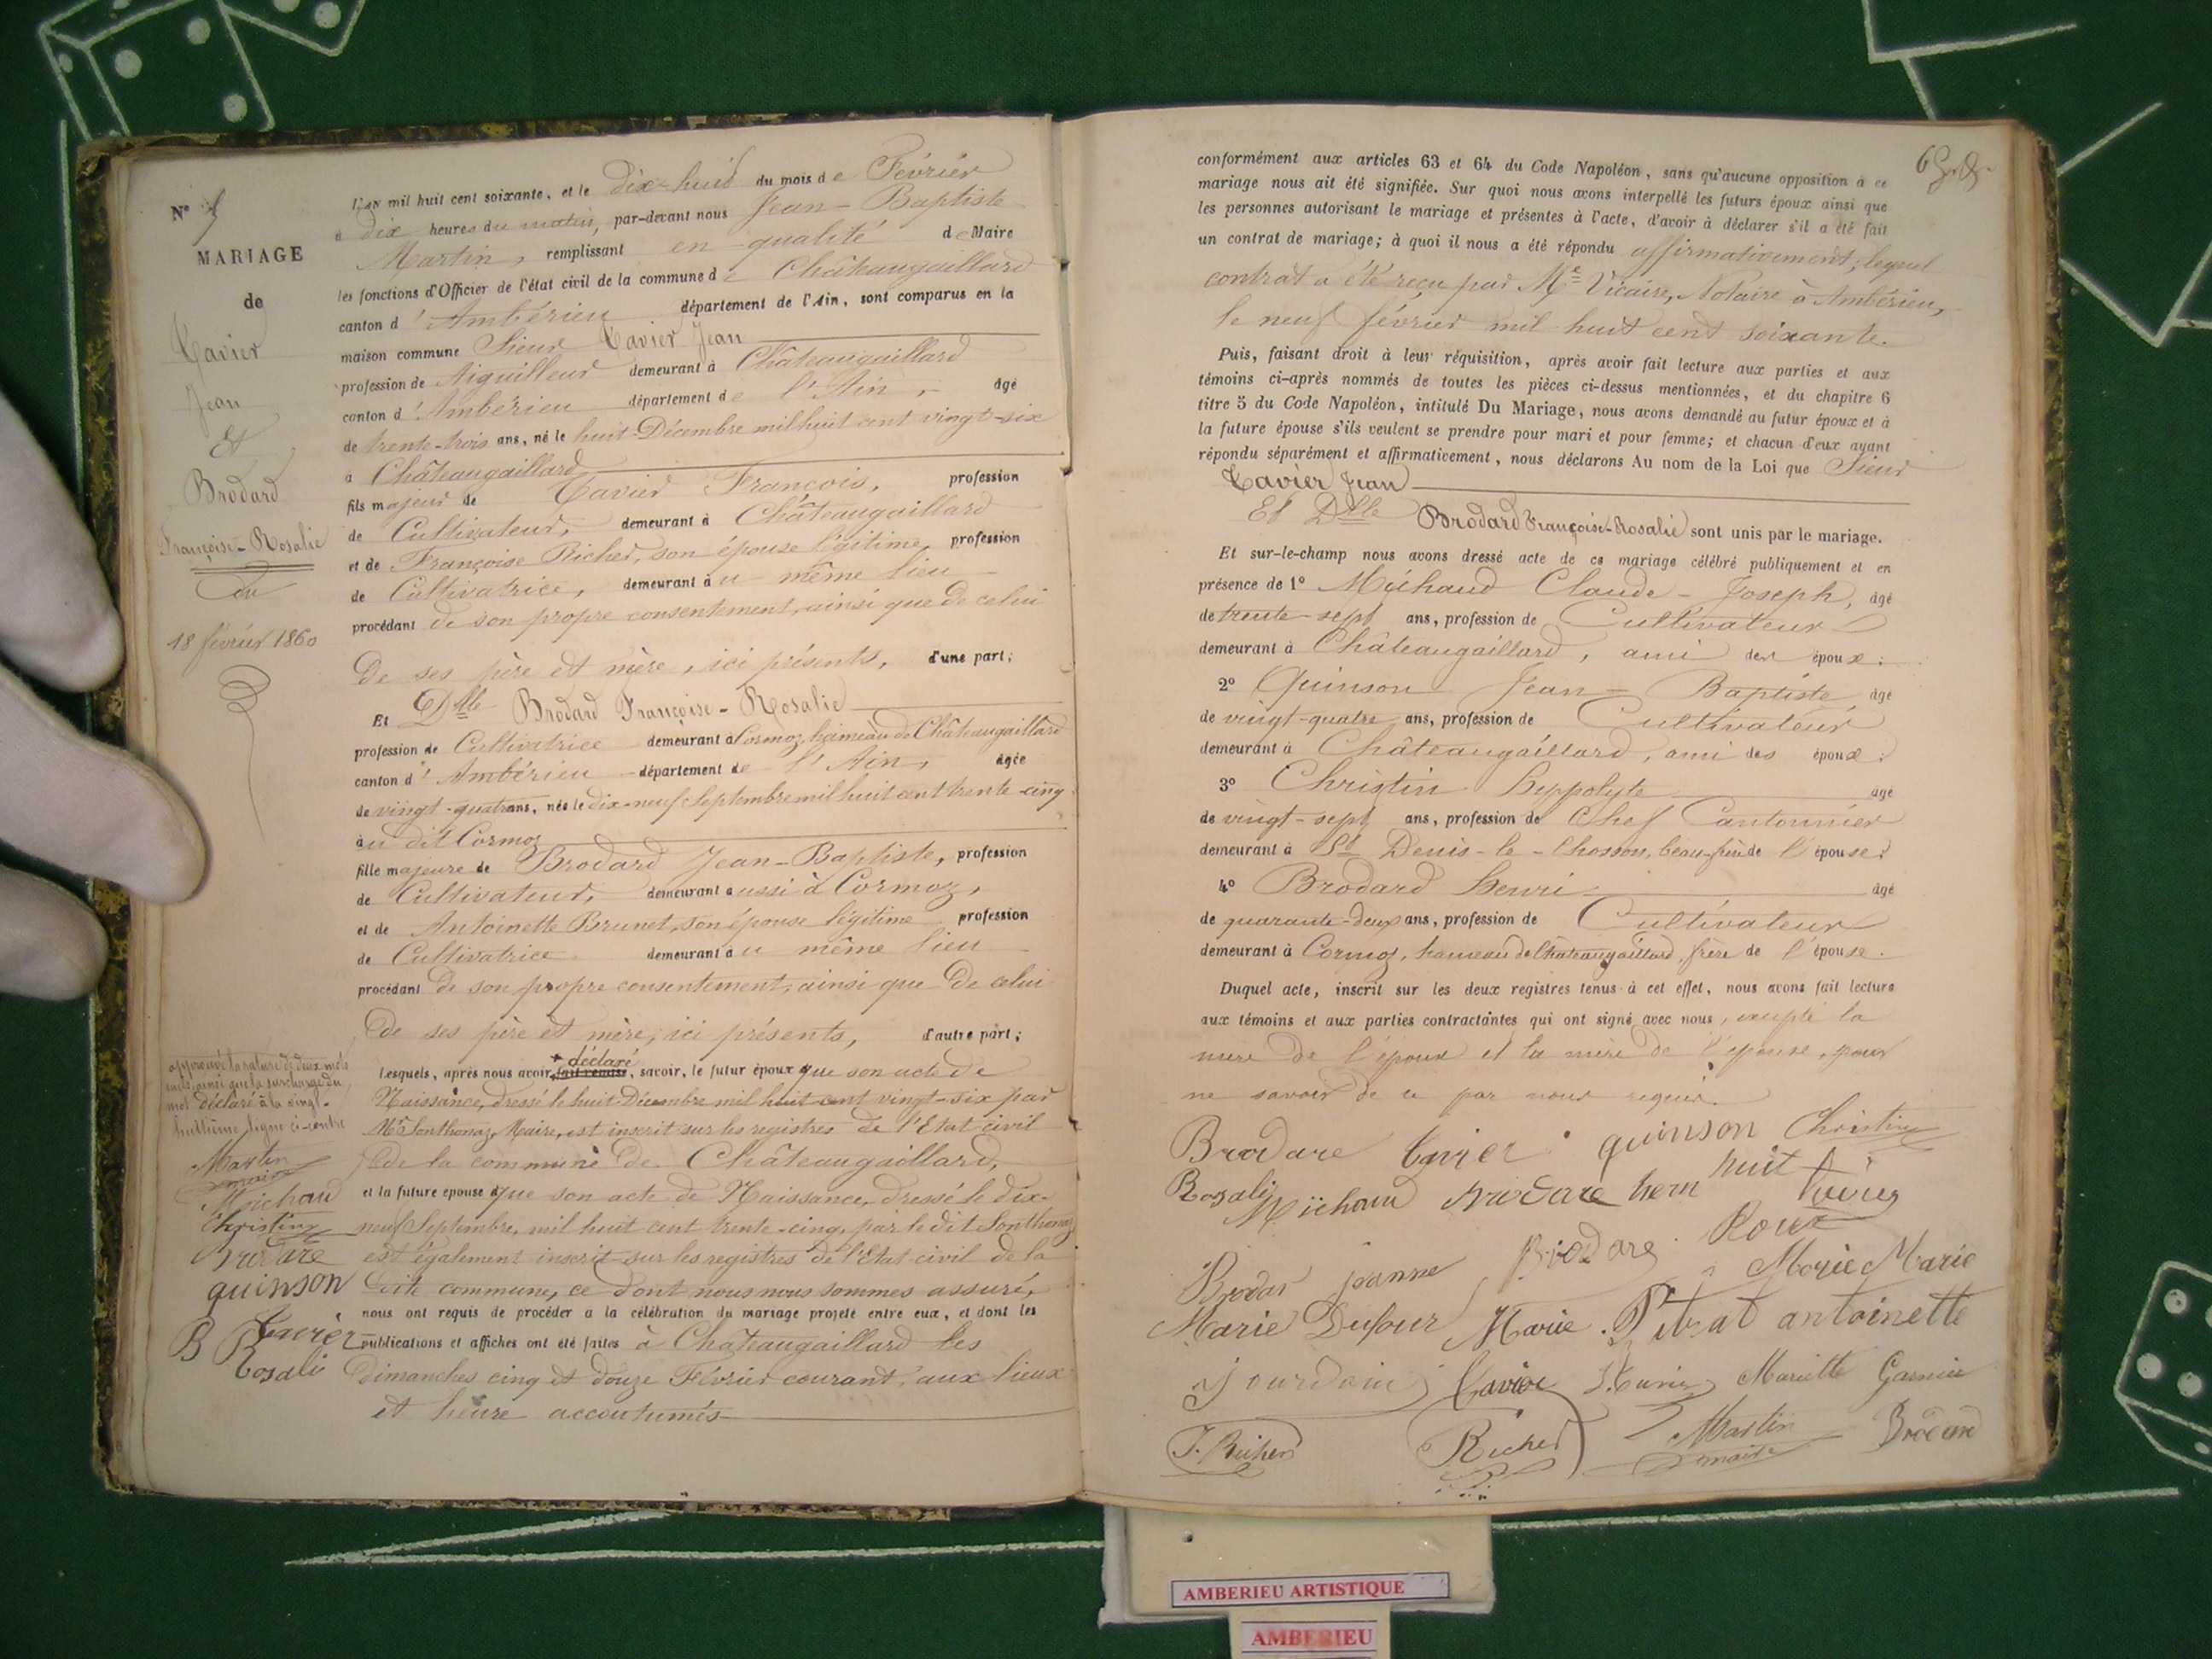 N°
MARIAGE
de
Tavier
Jean
Et
Brodard
Françoise-Rosalie
du
18 février 1860
L'an mil huit cent soixante, et le dix-huit du mois de Février
à dix heures du matin, par-devant nous Jean-Baptiste
Martin, remplissant en qualité de Maire
les fonctions d'Officier de l'état civil de la commune de Châteaugaillard
canton d'Ambérieu département de l'Ain, sont comparus en la
maison commune Sieur Tavier Jean
profession de Aiguilleur demeurant à Châteaugaillard
canton d'Ambérieu département de l'Ain, âgé
de trente-trois ans, né le huit Décembre mil huit cent vingt-six
à Châteaugaillard
fils majeur de Tavier François, profession
de Cultivateur, demeurant à Châteaugaillard
et de Françoise Richer, son épouse légitime, profession
de Cultivatrice, demeurant au même lieu
procédant de son propre consentement, ainsi que de celui
De ses père et mère, ici présents, d'une part;
Et Dlle Brodard Françoise-Rosalie
profession de Cultivatrice demeurant à Cormoz, hameau de Châteaugaillard
canton d'Ambérieu département de l'Ain, âgée
de vingt-quatre ans, née le dix-neuf Septembre mil huit cent trente-cinq
au dit Cormoz
fille majeure de Brodard Jean-Baptiste, profession
de Cultivateur, demeurant aussi à Cormoz,
et de Antoinette Brunet, son épouse légitime profession
de Cultivatrice demeurant au même lieu
procédant de son propre consentement, ainsi que de celui
De ses père et mère, ici présents, d'autre part;
+ déclaré
Lesquels, après nous avoir fait remise, savoir, le futur époux que son acte de
Naissance, dressé le huit Décembre mil huit cent vingt-six par
Mr Sonthonaz, Maire, est inscrit sur les registres de l'Etat civil
de la commune de Châteaugaillard,
et la future épouse que son acte de Naissance, dressé le dix-
neuf Septembre, mil huit cent trente-cinq, par le dit Sonthonaz
est également inscrit sur les registres de l'Etat civil de la
dite commune, ce dont nous nous sommes assuré,
nous ont requis de procéder à la célébration du mariage projeté entre eux, et dont les
publications et affiches ont été faites à Châteaugaillard les
Dimanches cinq et douze Février courant, aux lieux
et heure accoutumés
approuvé la rature de deux mots
nuls, ainsi que la surcharge du
mot déclaré à la vingt-
huitième ligne ci-contre
Martin
maire
Michaud
Christin
Brodare
quinson
Tavier
B Rosali
conformément aux articles 63 et 64 du Code Napoléon, sans qu'aucune opposition à ce
mariage nous ait été signifiée. Sur quoi nous avons interpellé les futurs époux ainsi que
les personnes autorisant le mariage et présentes à l'acte, d'avoir à déclarer s'il a été fait
un contrat de mariage; à quoi il nous a été répondu affirmativement, lequel
contrat a été reçu par Me Vicaire, Notaire à Ambérieu,
le neuf février mil huit cent soixante.
Puis, faisant droit à leur réquisition, après avoir fait lecture aux parties et aux
témoins ci-après nommés de toutes les pièces ci-dessus mentionnées, et du chapitre 6
titre 5 du Code Napoléon, intitulé Du Mariage, nous avons demandé au futur époux et à
la future épouse s'ils veulent se prendre pour mari et pour femme; et chacun d'eux ayant
répondu séparément et affirmativement, nous déclarons Au nom de la Loi que Sieur
Tavier Jean
Et Dlle Brodard Françoise-Rosalie sont unis par le mariage.
Et sur-le-champ nous avons dressé acte de ce mariage célébré publiquement et en
présence de 1° Michaud Claude-Joseph, âgé
de trente-sept ans, profession de Cultivateur
demeurant à Châteaugaillard, ami des époux;
2° Quinson Jean-Baptiste âgé
de vingt-quatre ans, profession de Cultivateur
demeurant à Châteaugaillard, ami des époux;
3° Christin hyppolyte âgé
de vingt-sept ans, profession de Chef Cantonnier
demeurant à St Denis-le-Chosson, beau-frère de l'épouse;
4° Brodard henri âgé
de quarante-deux ans, profession de Cultivateur
demeurant à Cormoz, hameau de Châteaugaillard, frère de l'épouse.
Duquel acte, inscrit sur les deux registres tenus à cet effet, nous avons fait lecture
aux témoins et aux parties contractantes qui ont signé avec nous, excepté la
mère de l'époux et la mère de l'épouse, pour
ne savoir de ce par nous requis.
Brodare Tavier quinson Christin
Rosali Michaud Brodare henri huit
Roux
Brodar joanne Brodare Marie Marie
Marie Dufour Marie Pitrat antoinette
Jourdain Tavier J. Tavier Mariette Garnier
J. Richer Richer Martin Brodard
maire
AMBERIEU ARTISTIQUE
AMBERIEU